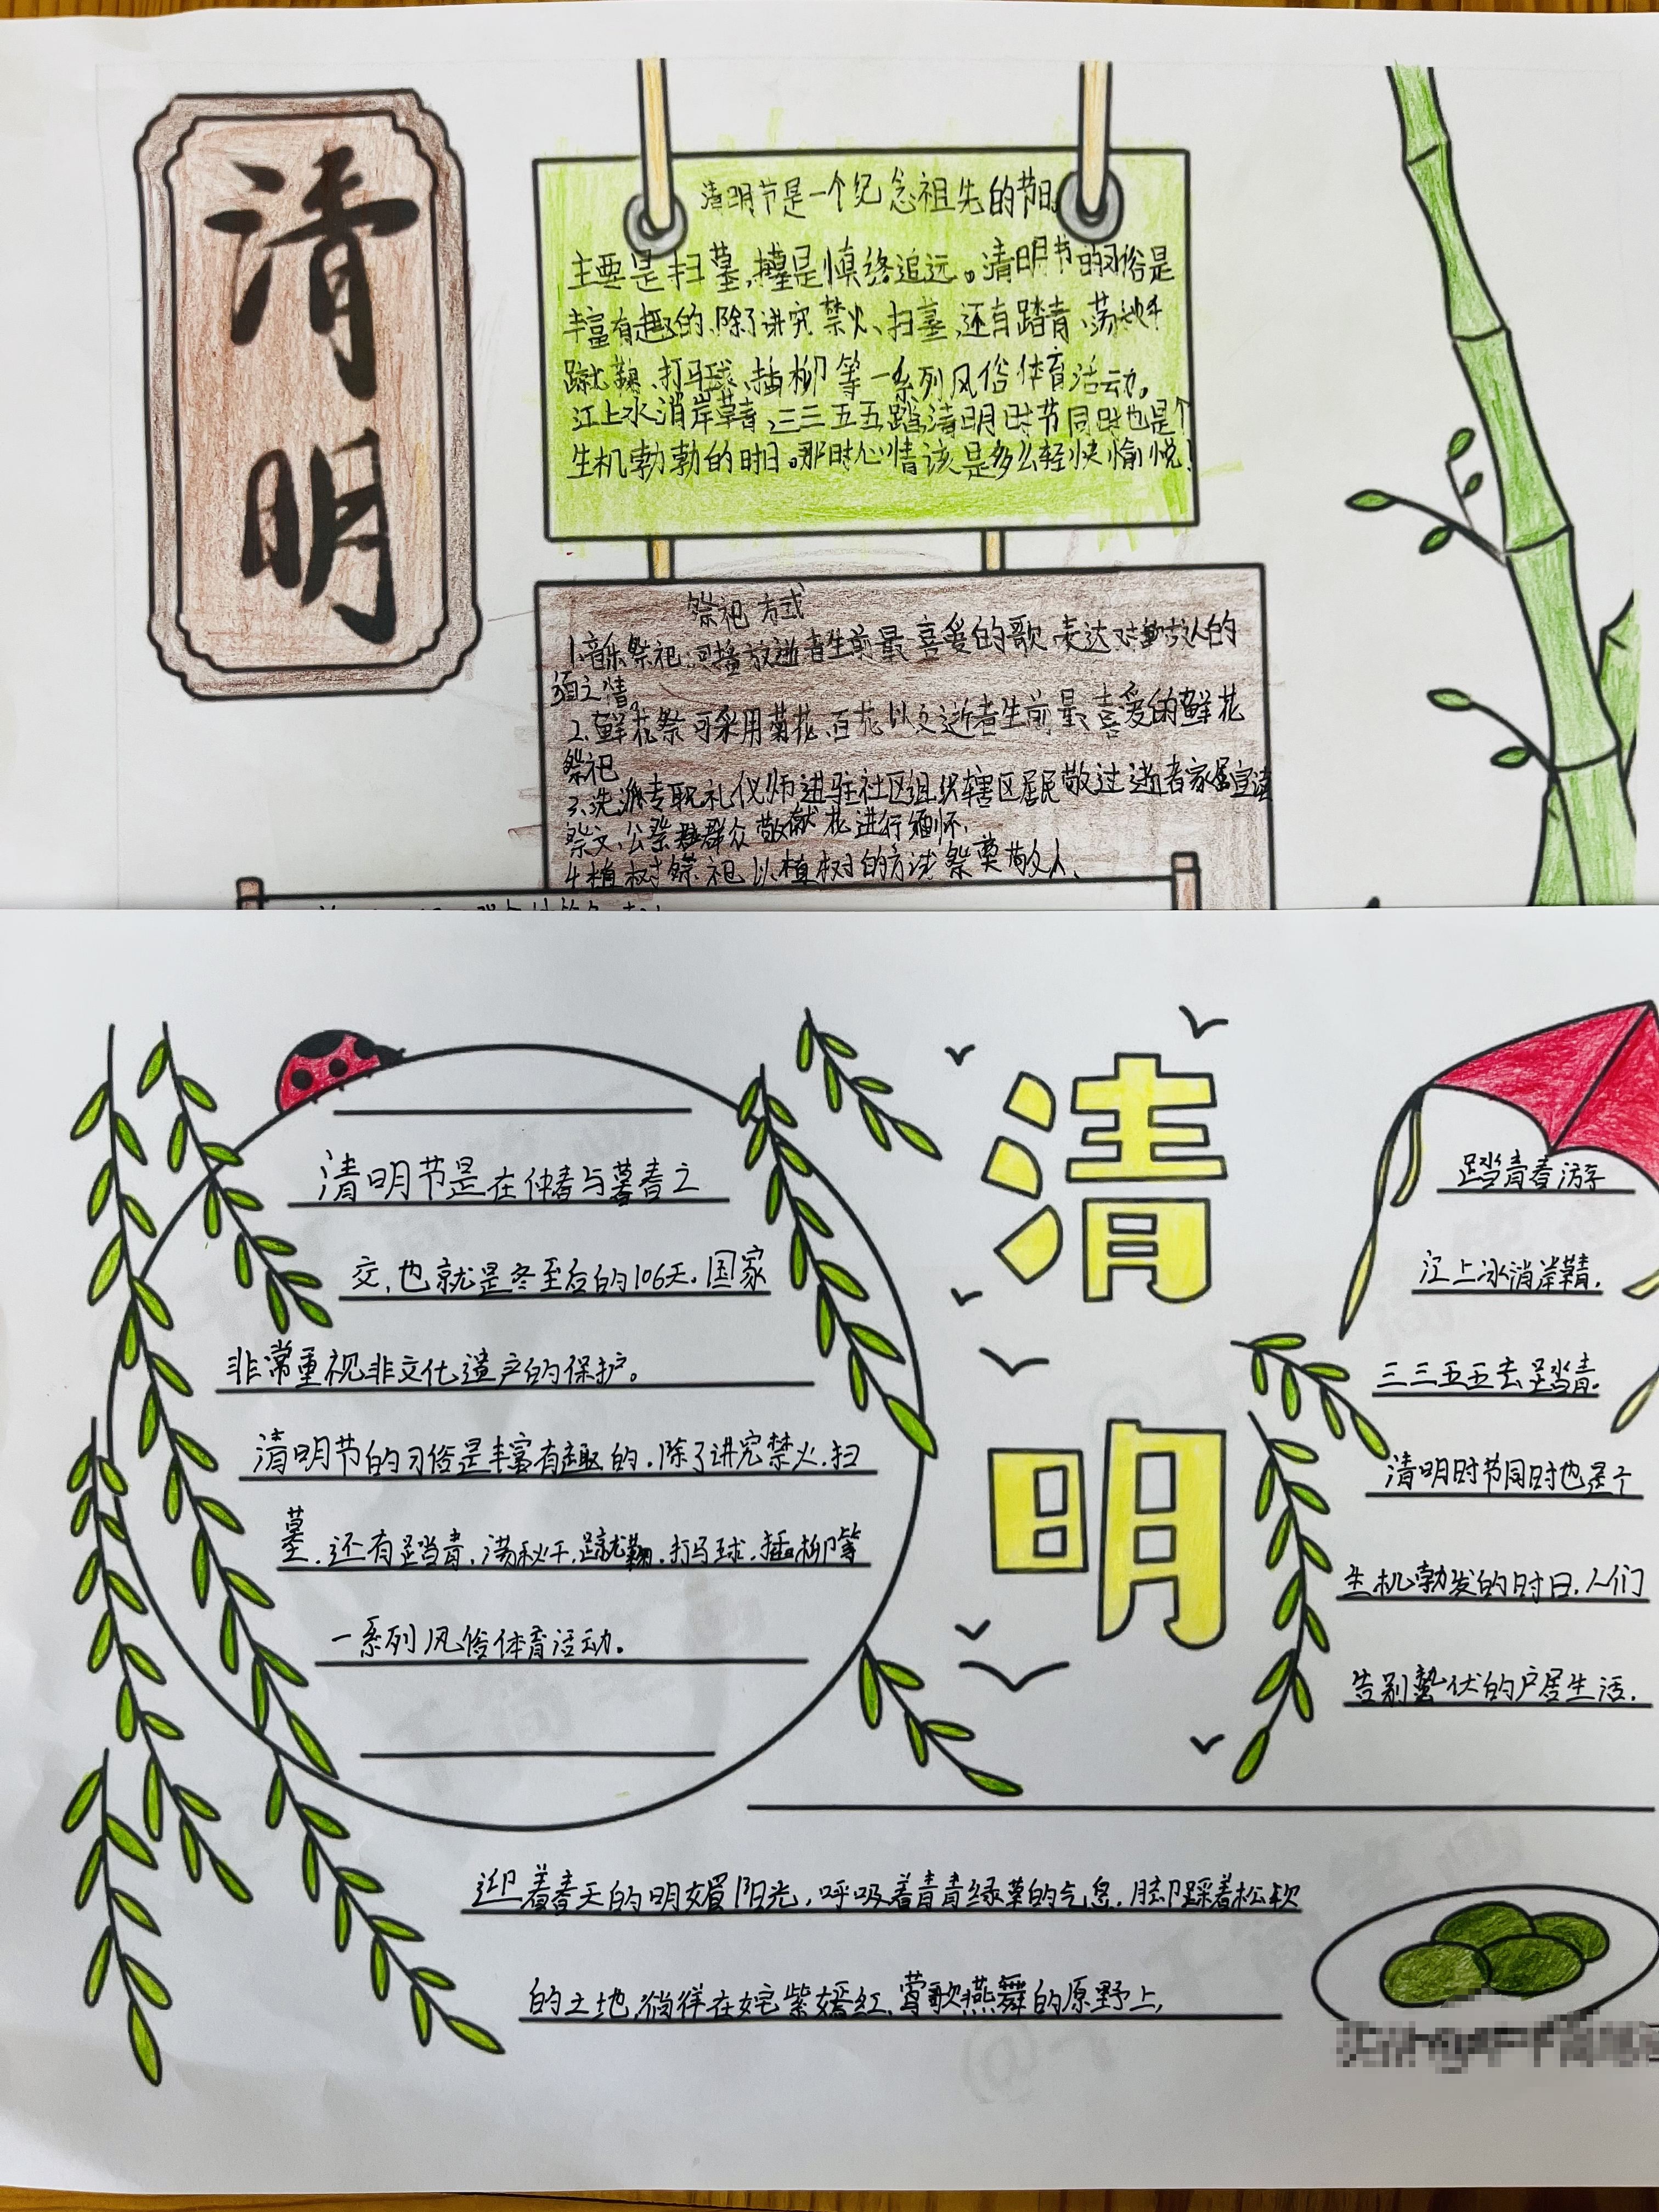 清明
清明节是一个纪念祖先的节日。
主要是扫墓,扫墓是慎终追远。清明节的习俗是
丰富有趣的,除了讲究禁火、扫墓,还有踏青、荡秋千
蹴鞠、打马球、插柳等一系列风俗体育活动。
江上冰消岸草青,三三五五踏清明时节同时也是个
生机勃勃的时日。那时心情该是多么轻快愉悦!
祭祀方式
1.音乐祭祀:可播放逝者生前最喜爱的歌表达对故人的
缅之情。
2.鲜花祭可采用菊花、百花以及逝者生前最喜爱的鲜花
祭祀
3.选派专职礼仪师进驻社区组织辖区居民敬过逝者家属宣读
祭文、公祭群众敬献花进行缅怀.
4.植树祭祀以植树的方式祭奠故人.
清
明
清明节是在仲春与暮春之
交,也就是冬至后的106天。国家
非常重视非文化遗产的保护。
清明节的习俗是丰富有趣的.除了讲究禁火.扫
墓.还有踏青,荡秋千.蹴鞠.打马球.插柳等
一系列风俗体育活动。
踏青春游
江上冰消岸草青.
三三五五去踏青.
清明时节同时也是个
生机勃发的时日.人们
告别蛰伏的户居生活.
迎着春天的明媚阳光,呼吸着青青绿草的气息.脚踩着松软
的土地,徜徉在姹紫嫣红,莺歌燕舞的原野上,